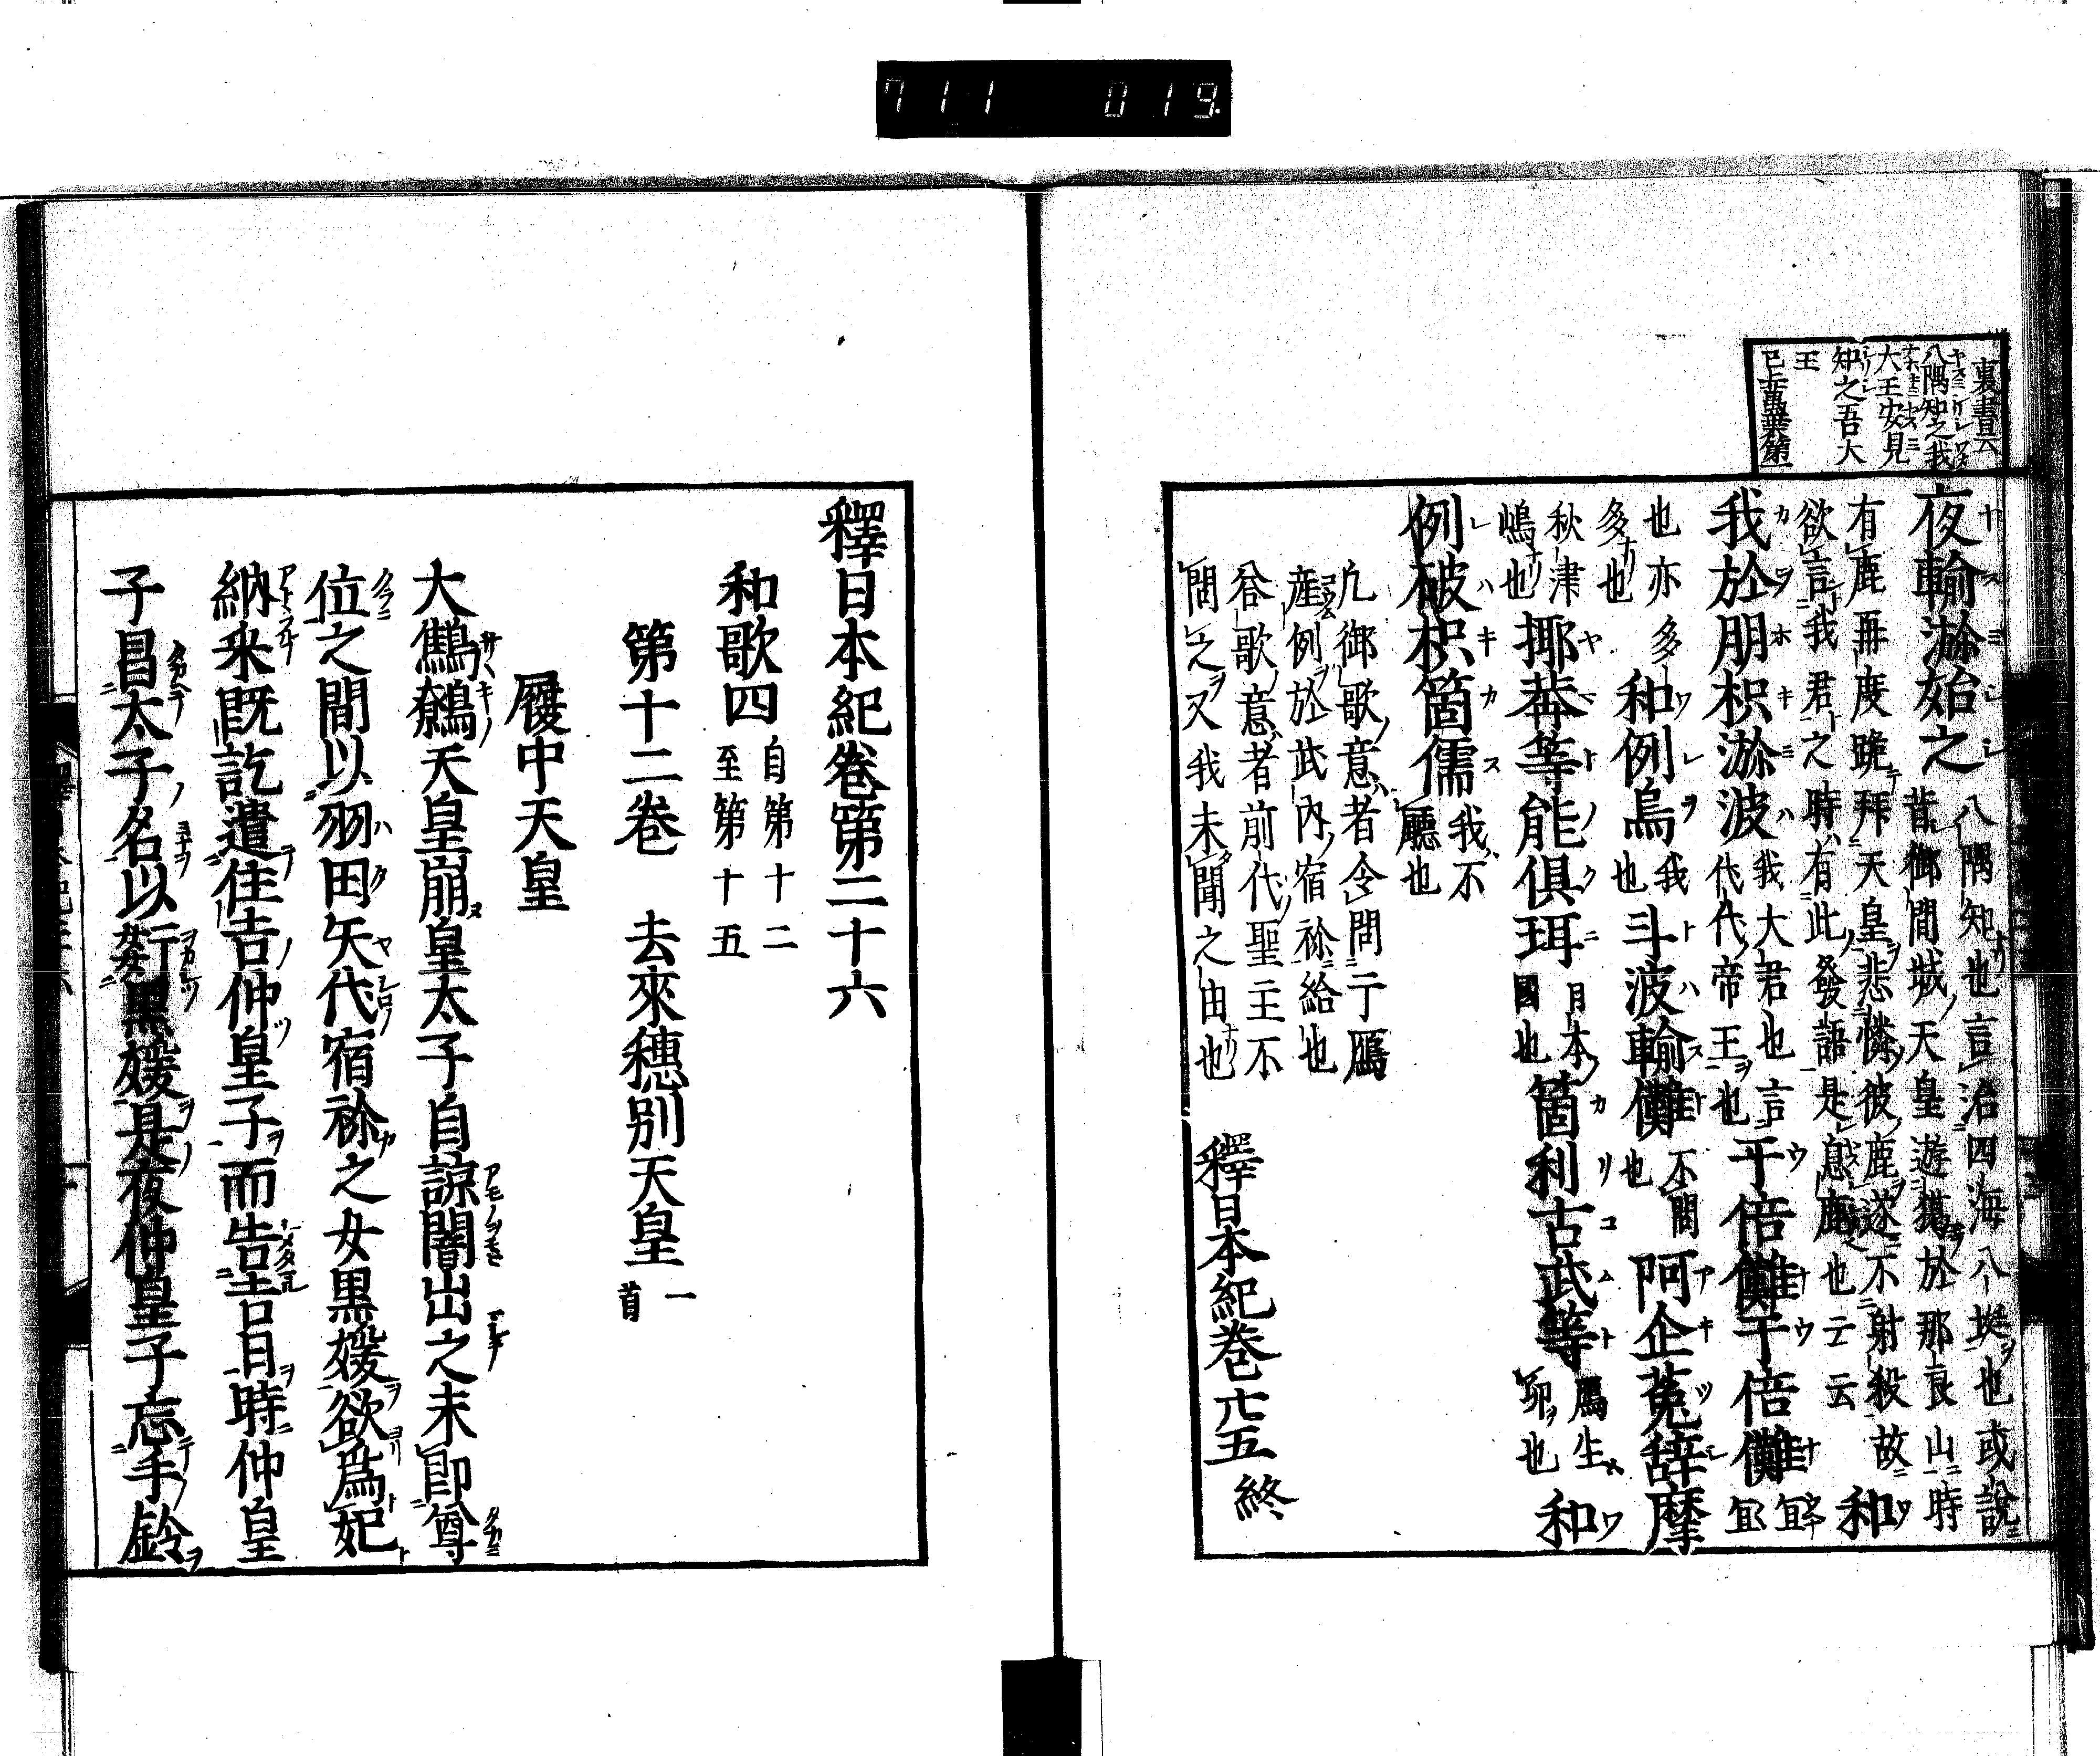 711 019
裏書云
八隅知之我
大王安見
知之吾大
王
已上萬葉第一
夜輸瀰始之 八隅知也言治四海八埏也或說
昔御間城天皇遊猟於那良山時
有鹿再度跪拜天皇悲憐彼鹿遂不射殺故
欲言我君之時有此發語是息鹿也云云 和
我於朋枳瀰波 我大君也言代代帝王也 于倍儺于倍儺 宜宜
也亦多多也 和例烏 我也 斗波輸儺 不問也 阿企菟辞摩
秋津嶋也 揶莽等能倶珥 日本國也 箇利古武等 鴈生卵也 和
例破枳箇儒 我不聽也
凡御歌意者令問于鴈
産例於武内宿祢給也
答歌意者前代聖主不
問之又我未聞之由也
釋日本紀巻廿五 終
釋日本紀巻第二十六
和歌四 自第十二至第十五
第十二巻 去來穂別天皇 一首
履中天皇
大鷦鷯天皇崩皇太子自諒闇出之未即尊
位之間以羽田矢代宿祢之女黒媛欲爲妃
納采既訖遣住吉仲皇子而告吉日時仲皇
子冒太子名以姧黒媛是夜仲皇子忘手鈴